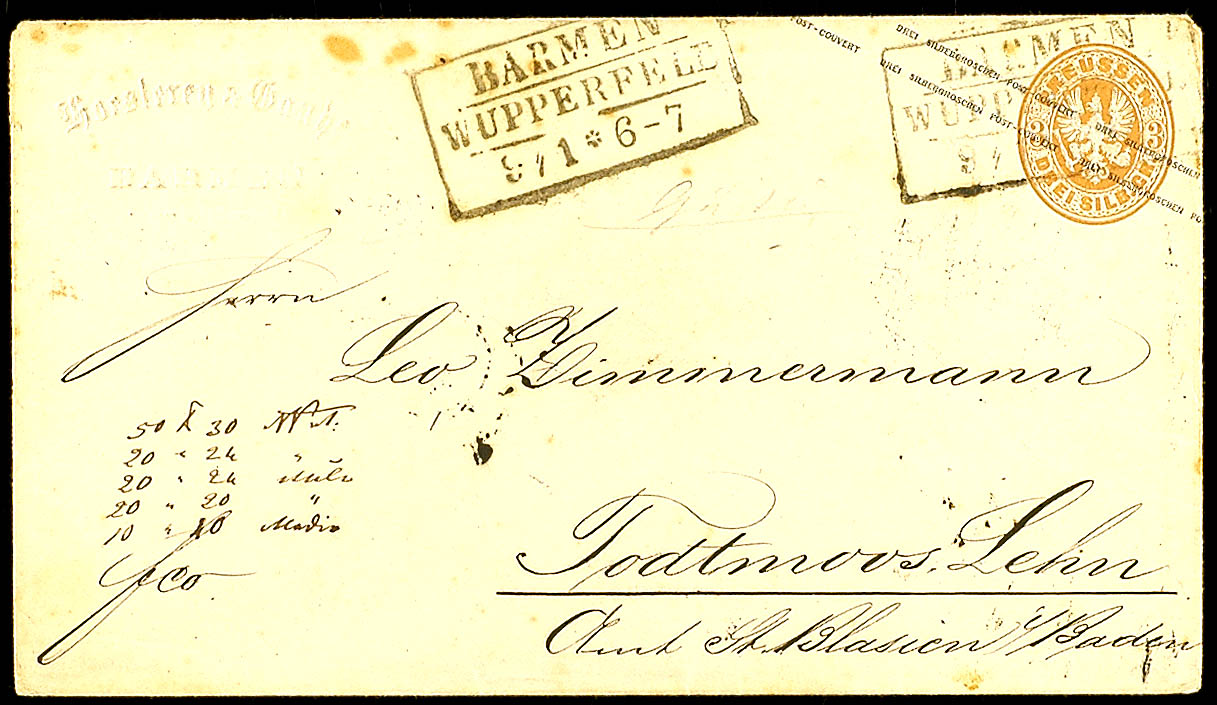 BARMEN
WUPPERFELD
9/1 * 6-7
BARMEN
WUPP
9/
POST-COUVERT
DREI SILBERGROSCHEN POST-COUVERT DREI SILBERGROSCHEN
DREI SILBERGROSCHEN POST-COUVERT DREI SILBERGROSCHEN PO
PREUSSEN
3 3
DREI SILBGR.
Herrn
Leo Zimmermann
50 30
20 " 24 "
20 " 24
20 " 20 "
10 " 10 Medio
fco
Todtmoos. Lehn
Amt St. Blasien i/Baden